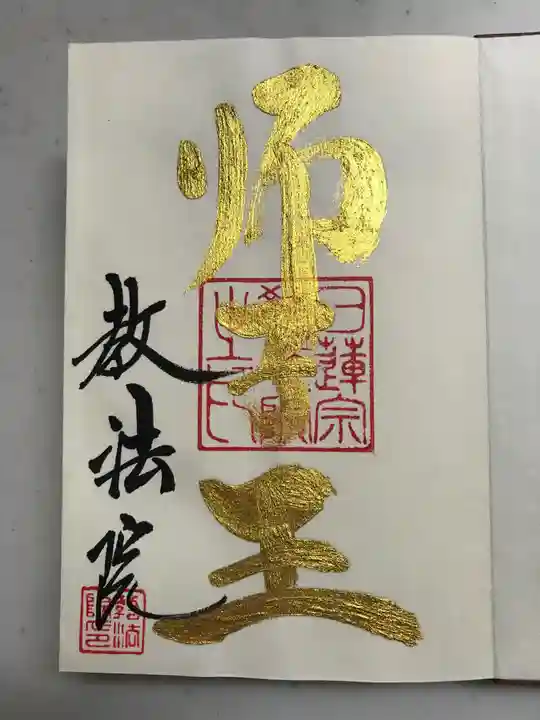 师子王
日蓮宗
教法院